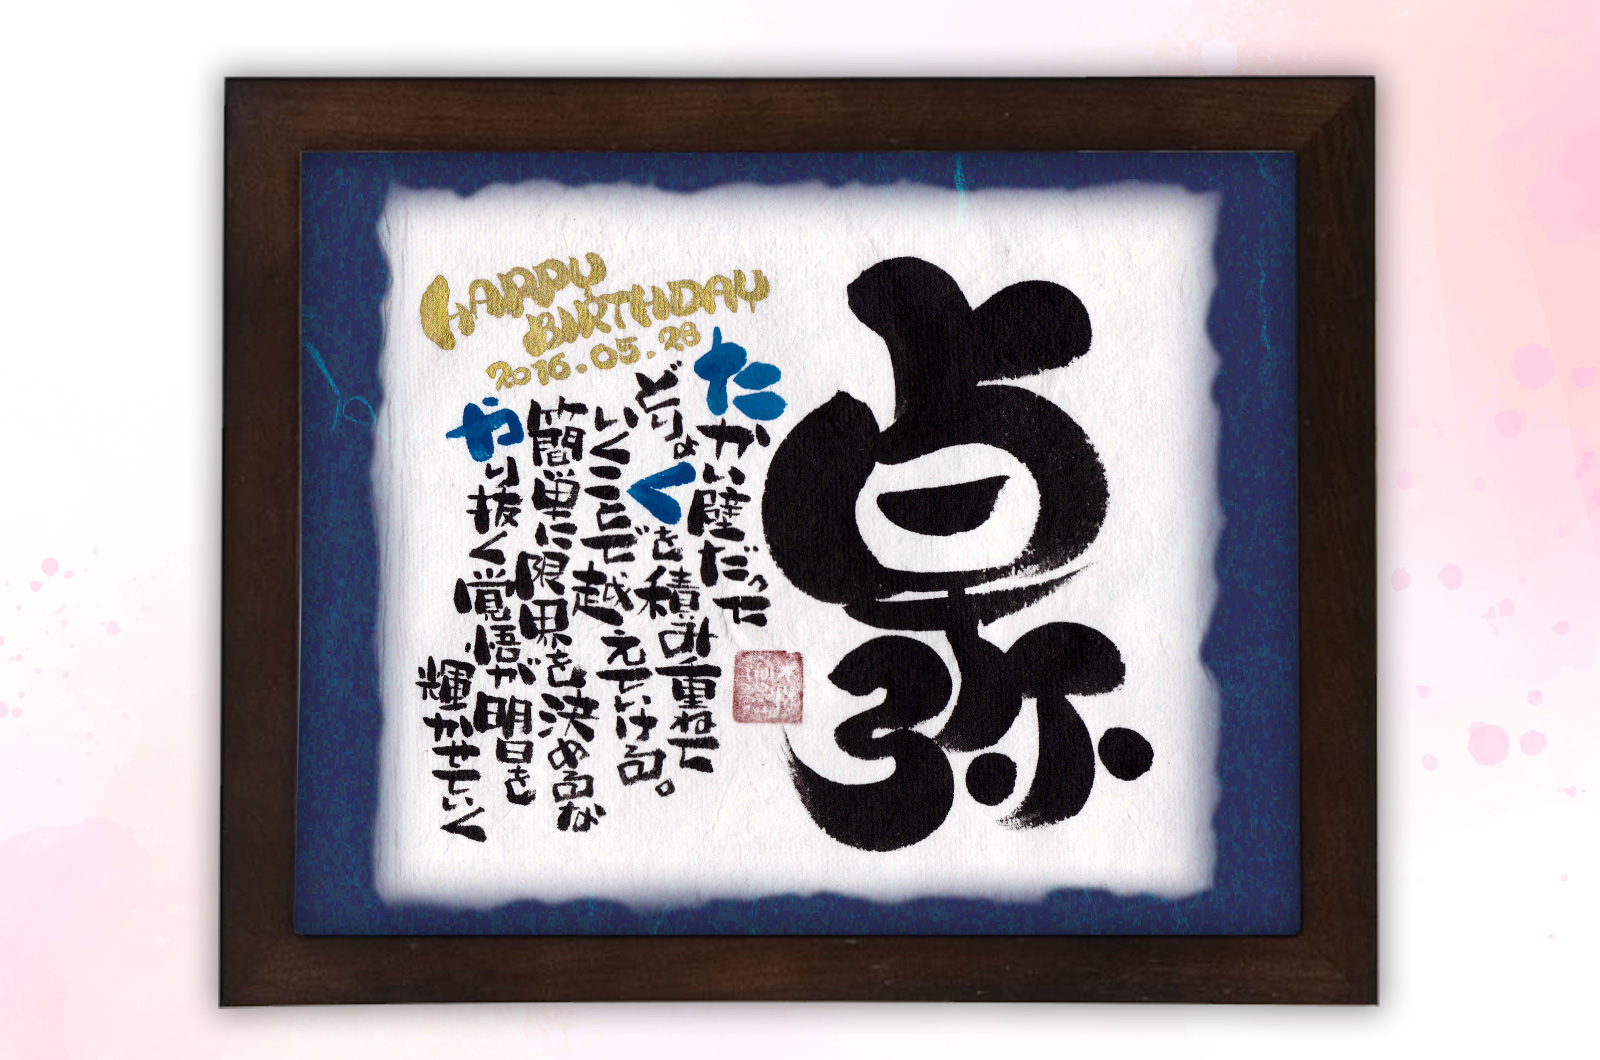 卓弥
たかい壁だった
どりょくを積み重ねて
いくことで越えていける。
簡単に限界を決めるな
やり抜く覚悟が明日を
輝かせていく
HAPPY
BIRTHDAY
2016.05.28